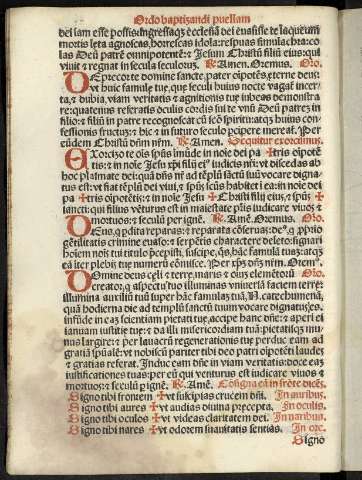 Ordo baptizandi puellam
dei iam esse possis: ingressaqȝ ecclesiā dei euasisse te laqueum
mortis leta agnoscas, horrescas idola: respuas simulachra: co
las Deū patrē omnipotentē: ⁊ Iesum Christū filiū eius: qui
viuit ⁊ regnat in secula seculorum. ℟. Amen. Oremus. Orõ.
DEprecor te domine sancte, pater oīpotēs, eterne deus:
vt huic famule tue, que seculi huius nocte vagaf incer-
ta, ⁊ dubia, viam veritatis ⁊ agnitionis tue iubeas demonstra
re: quatenus reseratis oculis cordis sui te vnū Deū patrez in
filio: ⁊ filiū in patre recognoscat cū scō spiritu: atqȝ huius con-
fessionis fructuȝ: ⁊ hic ⁊ in futuro seculo pcipere mereaf. Per
eūdem Christū dn̄m nr̄m. ℟. Amen. Sequitur exorcismus.
EXorcizo te oīs spūs imūde in noīe dei pa ✠ tris oīpotē
tis: ⁊ in noīe Jesu xp̄i filij ei⁹ ⁊ iudicis nr̄i: vt discedas ab
hoc plasmate dei: quā dn̄s nr̄ ad tēplū sanctū suū vocare digna
tus est: vt fiat tēplū dei viui, ⁊ spūs scūs habitet ī ea: in noīe dei
pa ✠ tris oīpotētis: ⁊ in noīe Jesu ✠ Christi filij eius, ⁊ spūs ✠
sancti: qui filius vēturus est in maiestate p̄ris iudicare viuos ⁊
mortuos: ⁊ seculū per ignē. ℟. Amē. Oremus. Orõ.
DEus, q pdita reparas: ⁊ reparata cōseruas: de⁹, q pprio
gētilitatis crimine euaso: ⁊ serpētis charactere deleto: signari
hoīem noīs tui titulo pcepisti, suscipe, qs, hāc famulā tuaȝ: atqȝ
eā iter plebis tue numerū cōmisce. Per xp̄m dn̄m nr̄m. Orem⁹.
DOmine deus celi ⁊ terre, maris ⁊ eius elemētorū Orõ.
creator, q aspectu tuo illuminas vniuersā faciem terre:
illumina auxiliū tuū super hāc famulaȝ tuā, N. catechumenā,
quā hodierna die ad templū sanctū tuum vocare dignatus es,
infūde in eaȝ scientiam pietati tue, accipe hanc dn̄e: ⁊ aperi ei
ianuam iustitie tue: ⁊ da illi misericordiam tuā: pietatisqȝ mu
nus largire: ⁊ per lauacrū regenerationis tue perduc eam ad
gratiā spūalē: vt nobiscū pariter tibi deo patri oīpotēti laudes
⁊ gratias referat. Induc eam dn̄e in viam veritatis: doce eaȝ
iustificationes tuas: per eū qui venturus est iudicare viuos ⁊
mortuos: ⁊ seculū p ignē. ℟. Amē. Cōsigna eā in frōte dicēs.
Signo tibi frontem ✠ vt suscipias crucem dn̄i. In auribus.
Signo tibi aures ✠ vt audias diuina precepta. In oculis.
Signo tibi oculos ✠ vt videas claritatem dei. In naribus.
Signo tibi nares ✠ vt odorem suauitatis sentias. In ore.
Signo